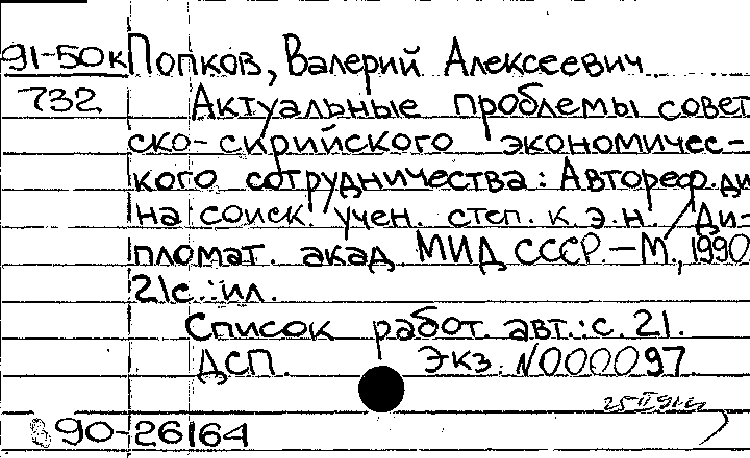 91-50к Попков, Валерий Алексеевич
732 Актуальные проблемы совет
ско-сирийского экономичес-
кого сотрудничества: Автореф. ди
на соиск. учен. степ. к.э.н. / Ди-
пломат. акад. МИД СССР. – М., 1990
21с.: ил.
Список работ. авт.: с. 21.
ДСП. Экз. N000097
90-26164